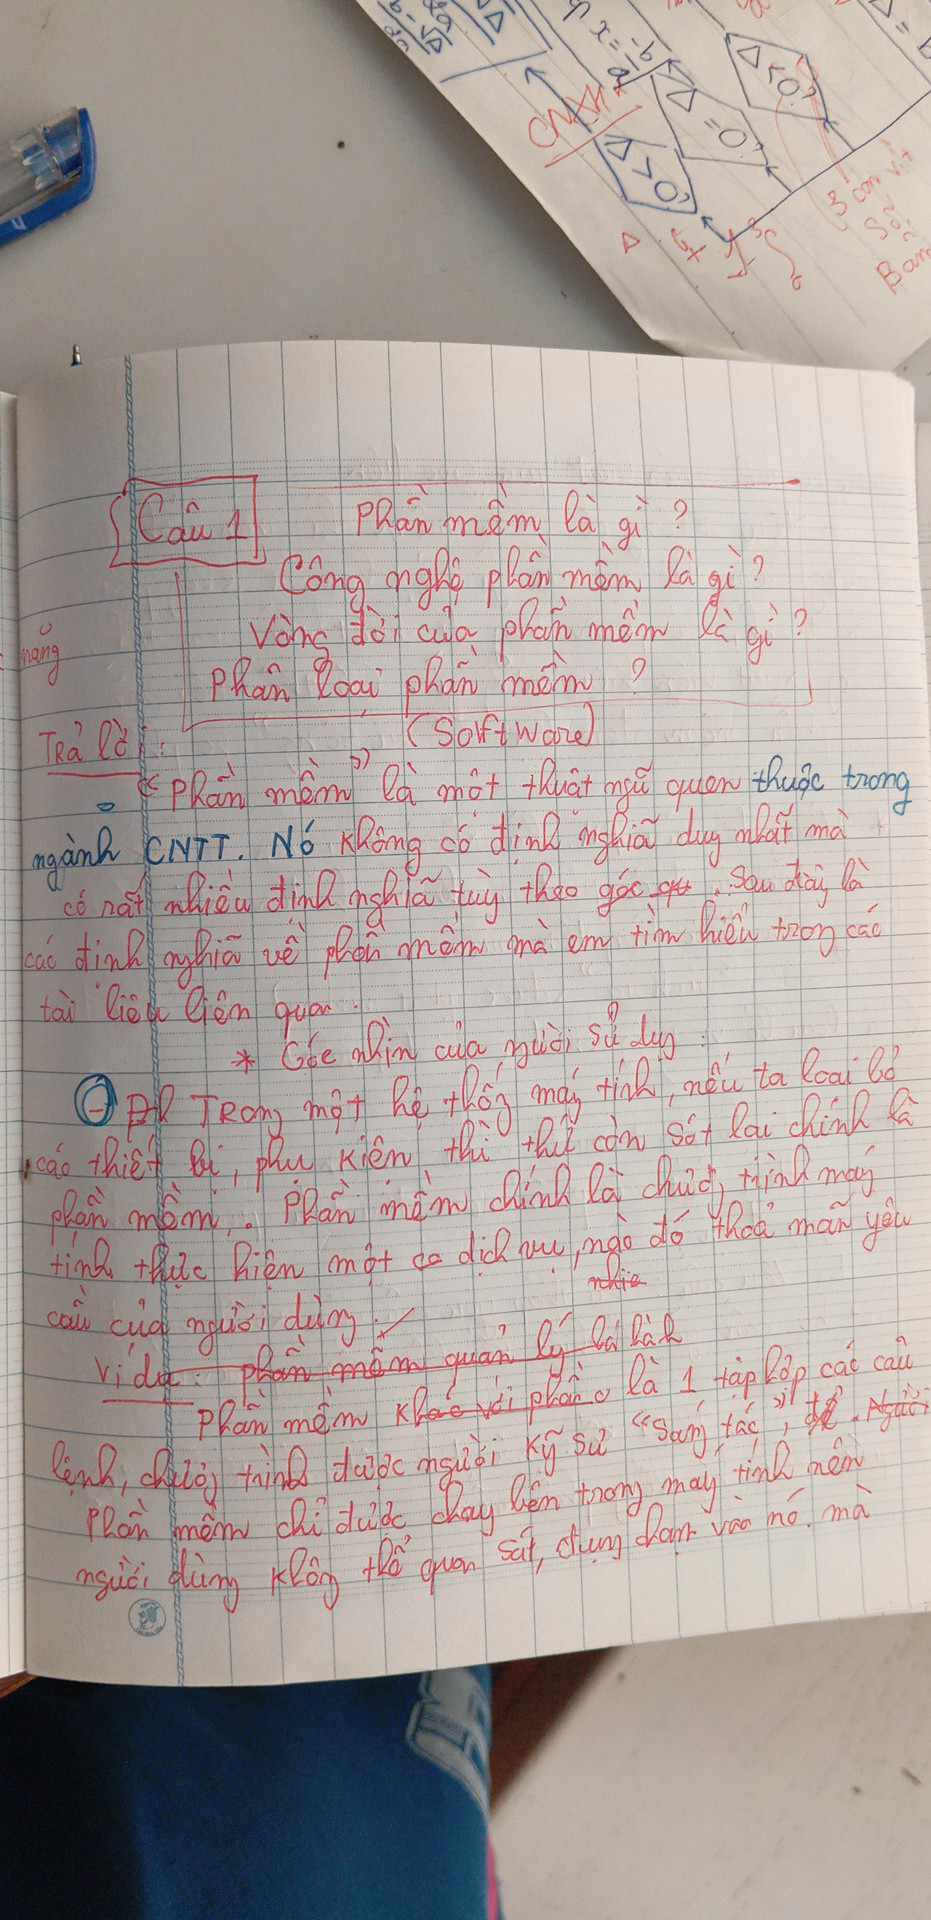 b - √Δ
2a
x = -b
a
Δ < 0?
Δ = 0?
Δ > 0?
CNXH
3 con vịt
Câu 1
Phần mềm là gì ?
Công nghệ phần mềm là gì ?
Vòng đời của phần mềm là gì ?
Phân loại phần mềm ?
năng
(Software)
Trả lờ :
"Phần mềm" là một thuật ngữ quen thuộc trong
ngành CNTT. Nó không có định nghĩa duy nhất mà
có rất nhiều định nghĩa tuỳ theo góc . Sau đây là
các định nghĩa về phần mềm mà em tìm hiểu trong các
tài liệu liên quan.
* Góc nhìn của người sử dụng :
- Trong một hệ thống máy tính, nếu ta loại bỏ
các thiết bị, phụ kiện thì thứ còn sót lại chính là
phần mềm. Phần mềm chính là chương trình máy
tính thực hiện một dịch vụ nào đó thoả mãn yêu
cầu của người dùng.
Ví dụ : phần mềm quản lý
Phần mềm khác với phần là 1 tập hợp các câu
lệnh, chương trình được người kỹ sư "sáng tác", để. Người
Phần mềm chỉ được chạy bên trong máy tính nên
người dùng không thể quan sát, đụng chạm vào nó. mà